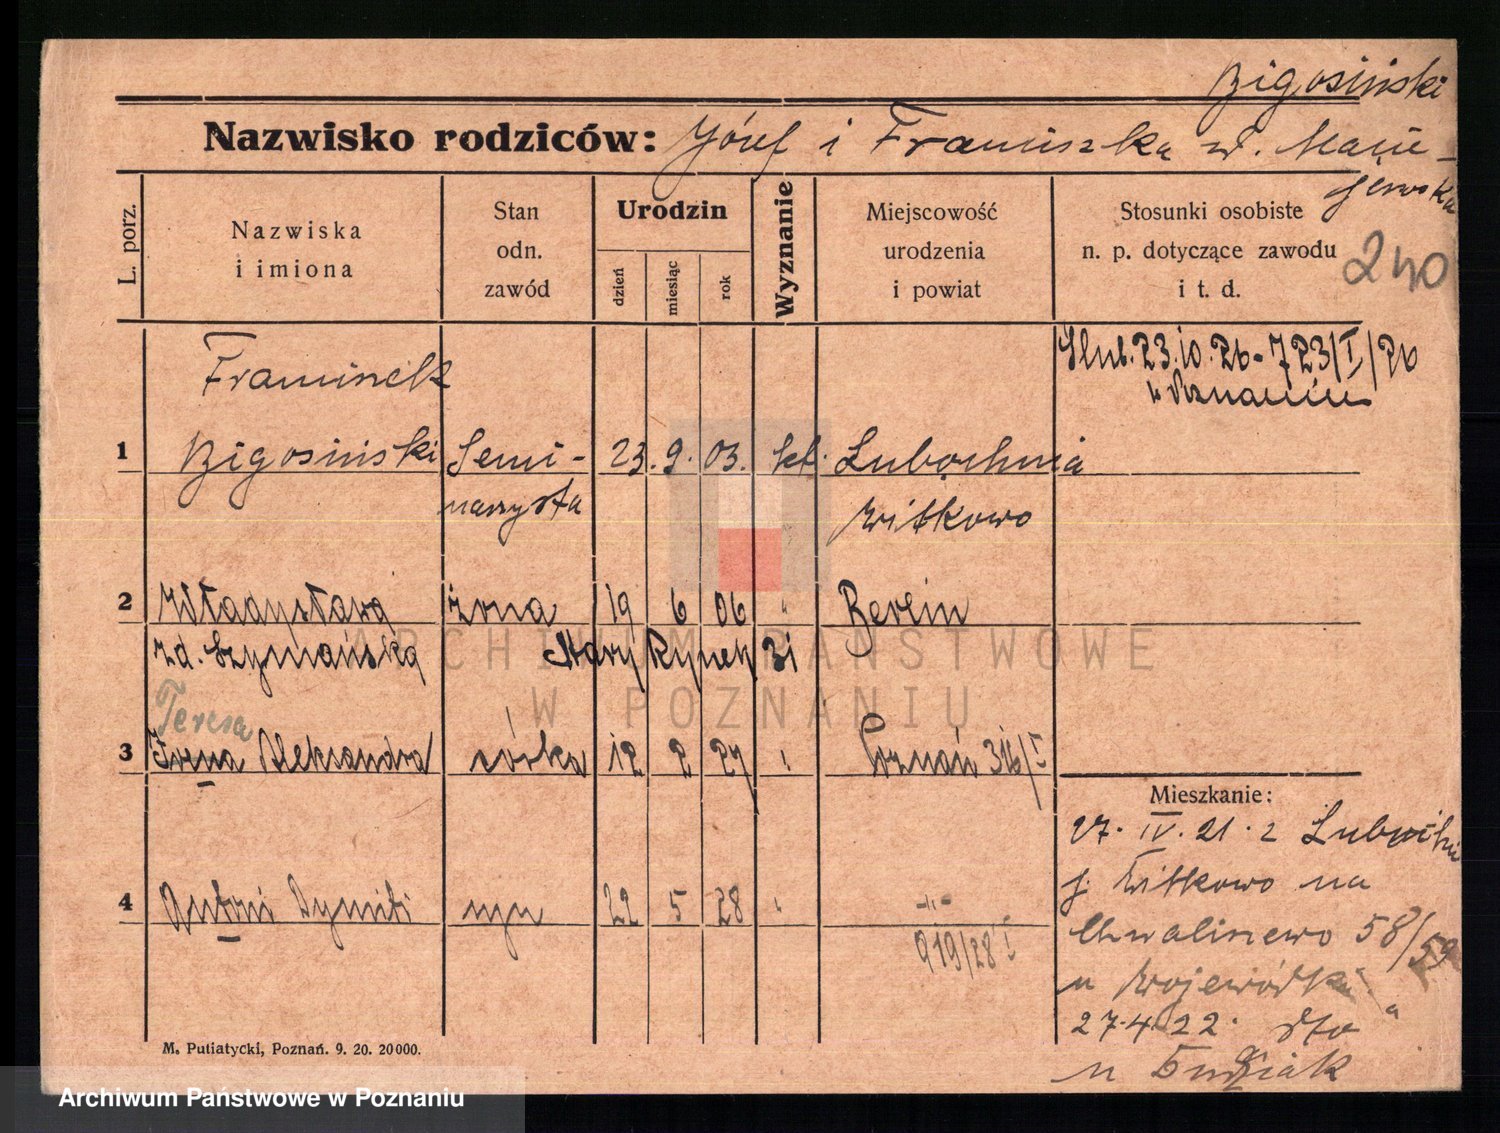 Bigosiński
Nazwisko rodziców: Józef i Franciszka
240
L. porz.
Nazwiska i imiona
Stan odn. zawód
Urodzin
dzień
miesiąc
rok
Wyznanie
Miejscowość urodzenia i powiat
Stosunki osobiste n. p. dotyczące zawodu i t. d.
Ślub. 23.10.26 - 723/I/26
w Poznaniu
Franciszek
1 Bigosiński Semi- 23. 9. 03. kt. Lubochnia
narzysta Witkowo
2 Władysława żona 19 6 06 " Berlin
zd. Szymańska Stary Rynek 31
Teresa
3 Irena Aleksandra córka 12 2 27 " Poznań 316/I
Mieszkanie:
27. IV. 21. z Lubochni
p. Witkowo na
4 Antoni syn 22 5 28 " -"-
919/28 I
Chwaliszewo 58/59
u
27.4.22. dto
u
M. Putiatycki, Poznań. 9. 20. 20000.
ARCHIWUM PAŃSTWOWE
W POZNANIU
Archiwum Państwowe w Poznaniu